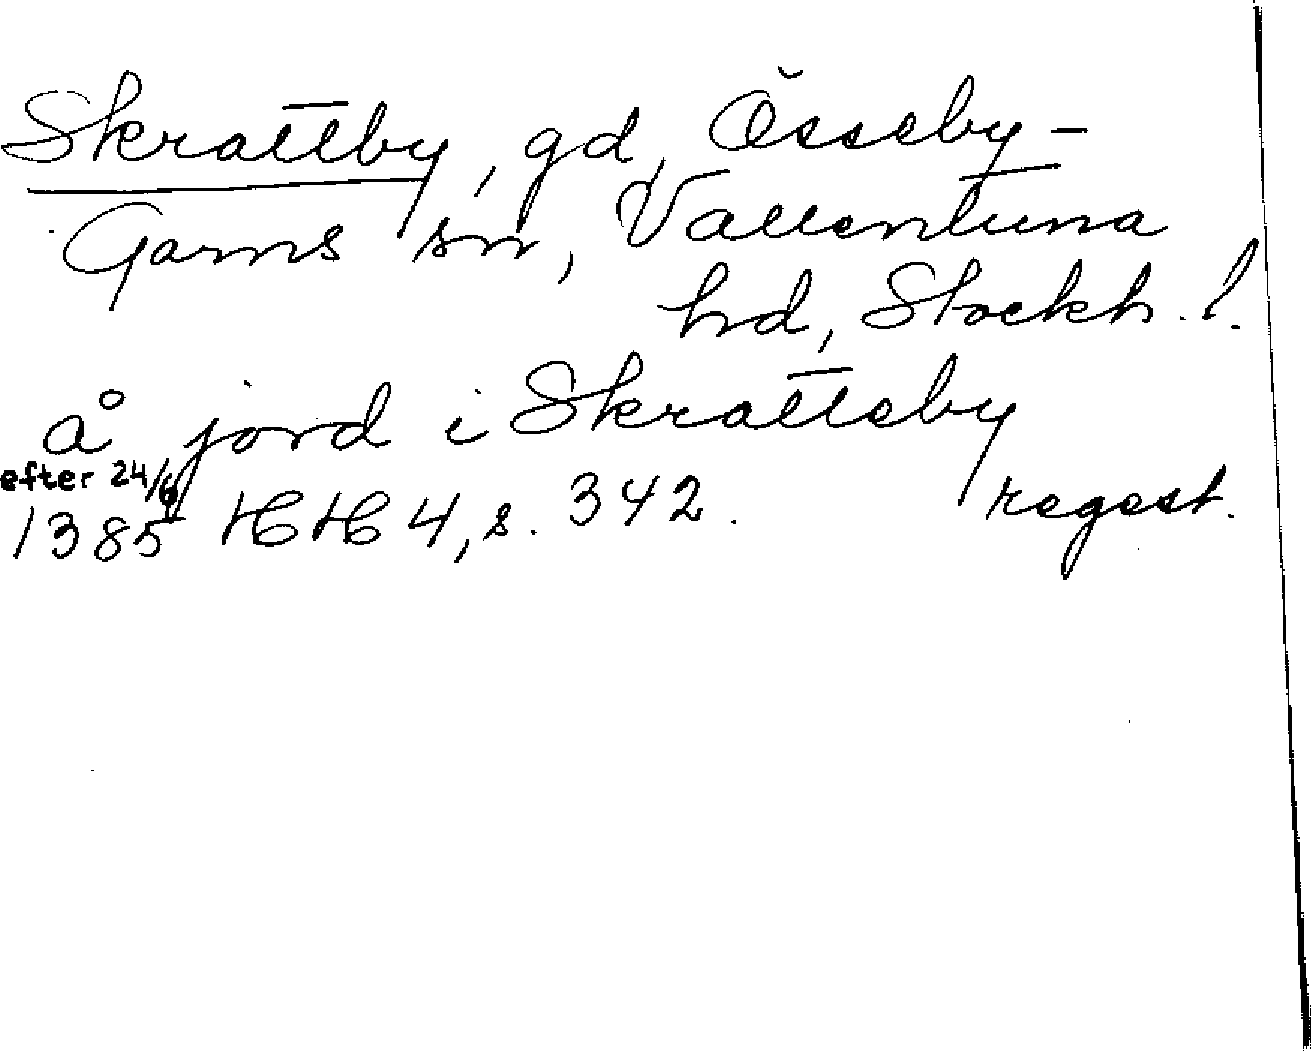 Skrattby, gd, Össeby-
Garns sn, Vallentuna
hd, Stockh. l.
å jord i Skratteby
efter 24/6
1385 HH 4, s. 342. regest.